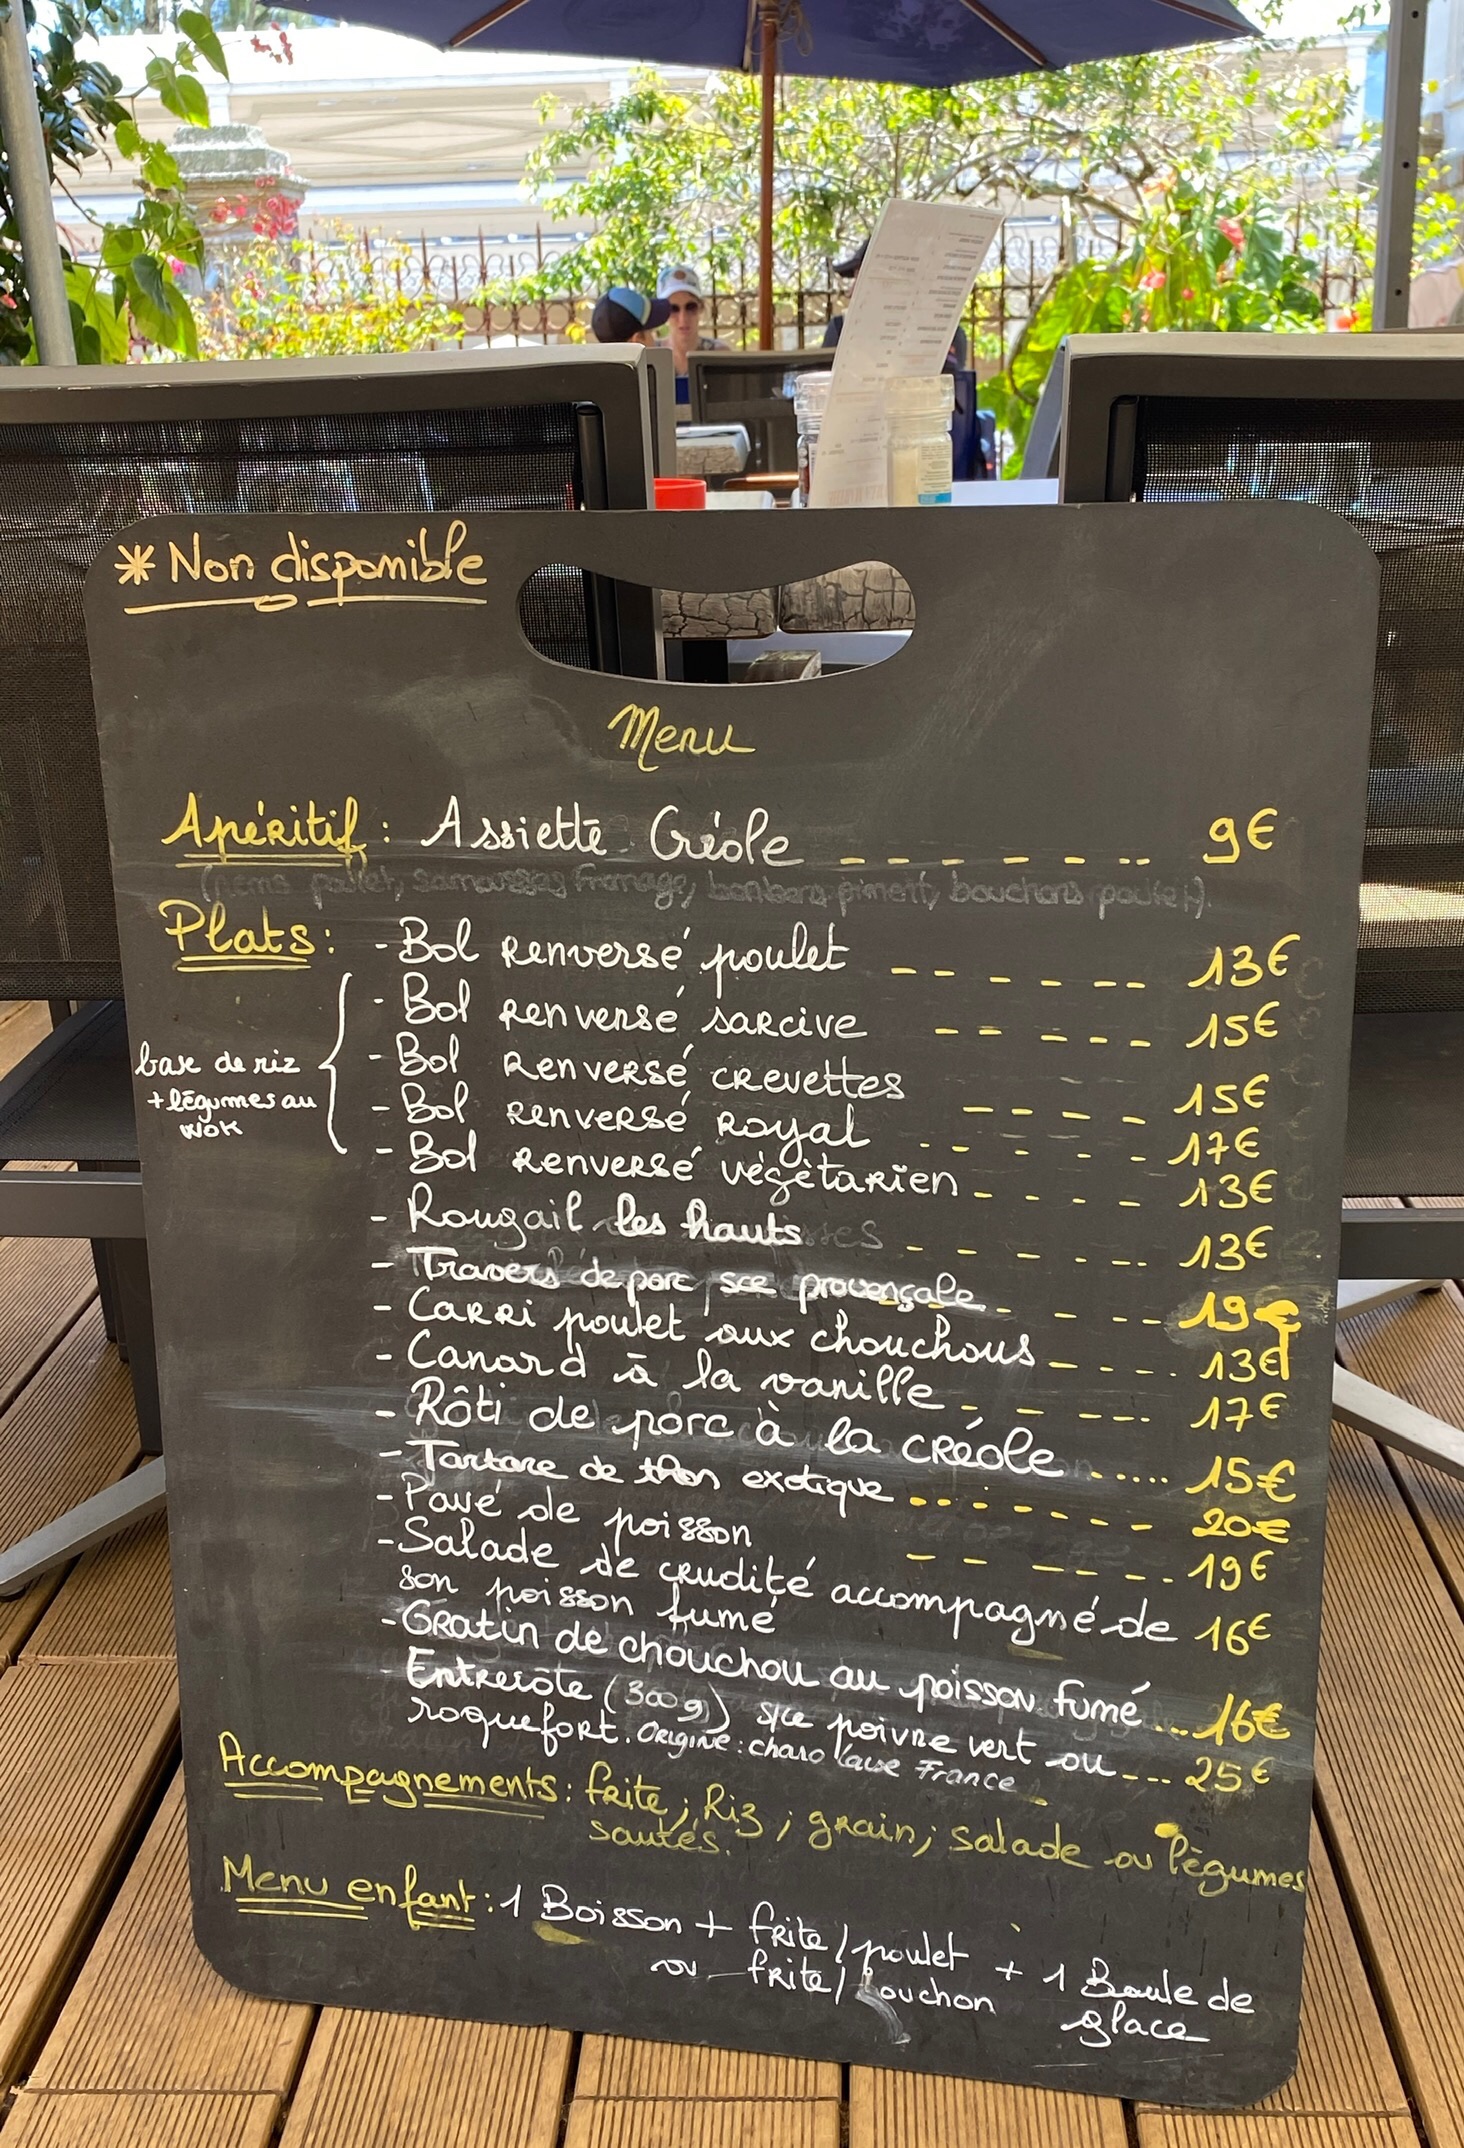 * Non disponible
Menu
Apéritif : Assiette Créole _ _ _ _ _ _ _ 9€
(nems poulet, samoussas fromage, bonbons piment, bouchons poulet).
Plats :
- Bol renversé poulet _ _ _ _ _ _ 13€
- Bol renversé sarcive _ _ _ _ _ _ 15€
- Bol renversé crevettes _ _ _ _ 15€
- Bol renversé royal _ _ _ _ _ _ 17€
- Bol renversé végétarien _ _ _ _ 13€
base de riz
+ légumes au
wok
- Rougail les hauts _ _ _ _ _ _ 13€
- Travers de porc sce provençale _ _ _ _ 19€
- Carri poulet aux chouchous _ _ _ _ 13€
- Canard à la vanille _ _ _ _ _ 17€
- Rôti de porc à la créole ..... 15€
- Tartare de thon exotique ......... 20€
- Pavé de poisson _ _ _ _ _ _ 19€
- Salade de crudité accompagné de
son poisson fumé 16€
- Gratin de chouchou au poisson fumé ... 16€
- Entrecôte (300g) sce poivre vert ou ... 25€
roquefort. Origine : charolaise France
Accompagnements : frite ; Riz ; grain ; salade ou légumes
sautés.
Menu enfant : 1 Boisson + frite/poulet + 1 Boule de
ou frite/bouchon glace